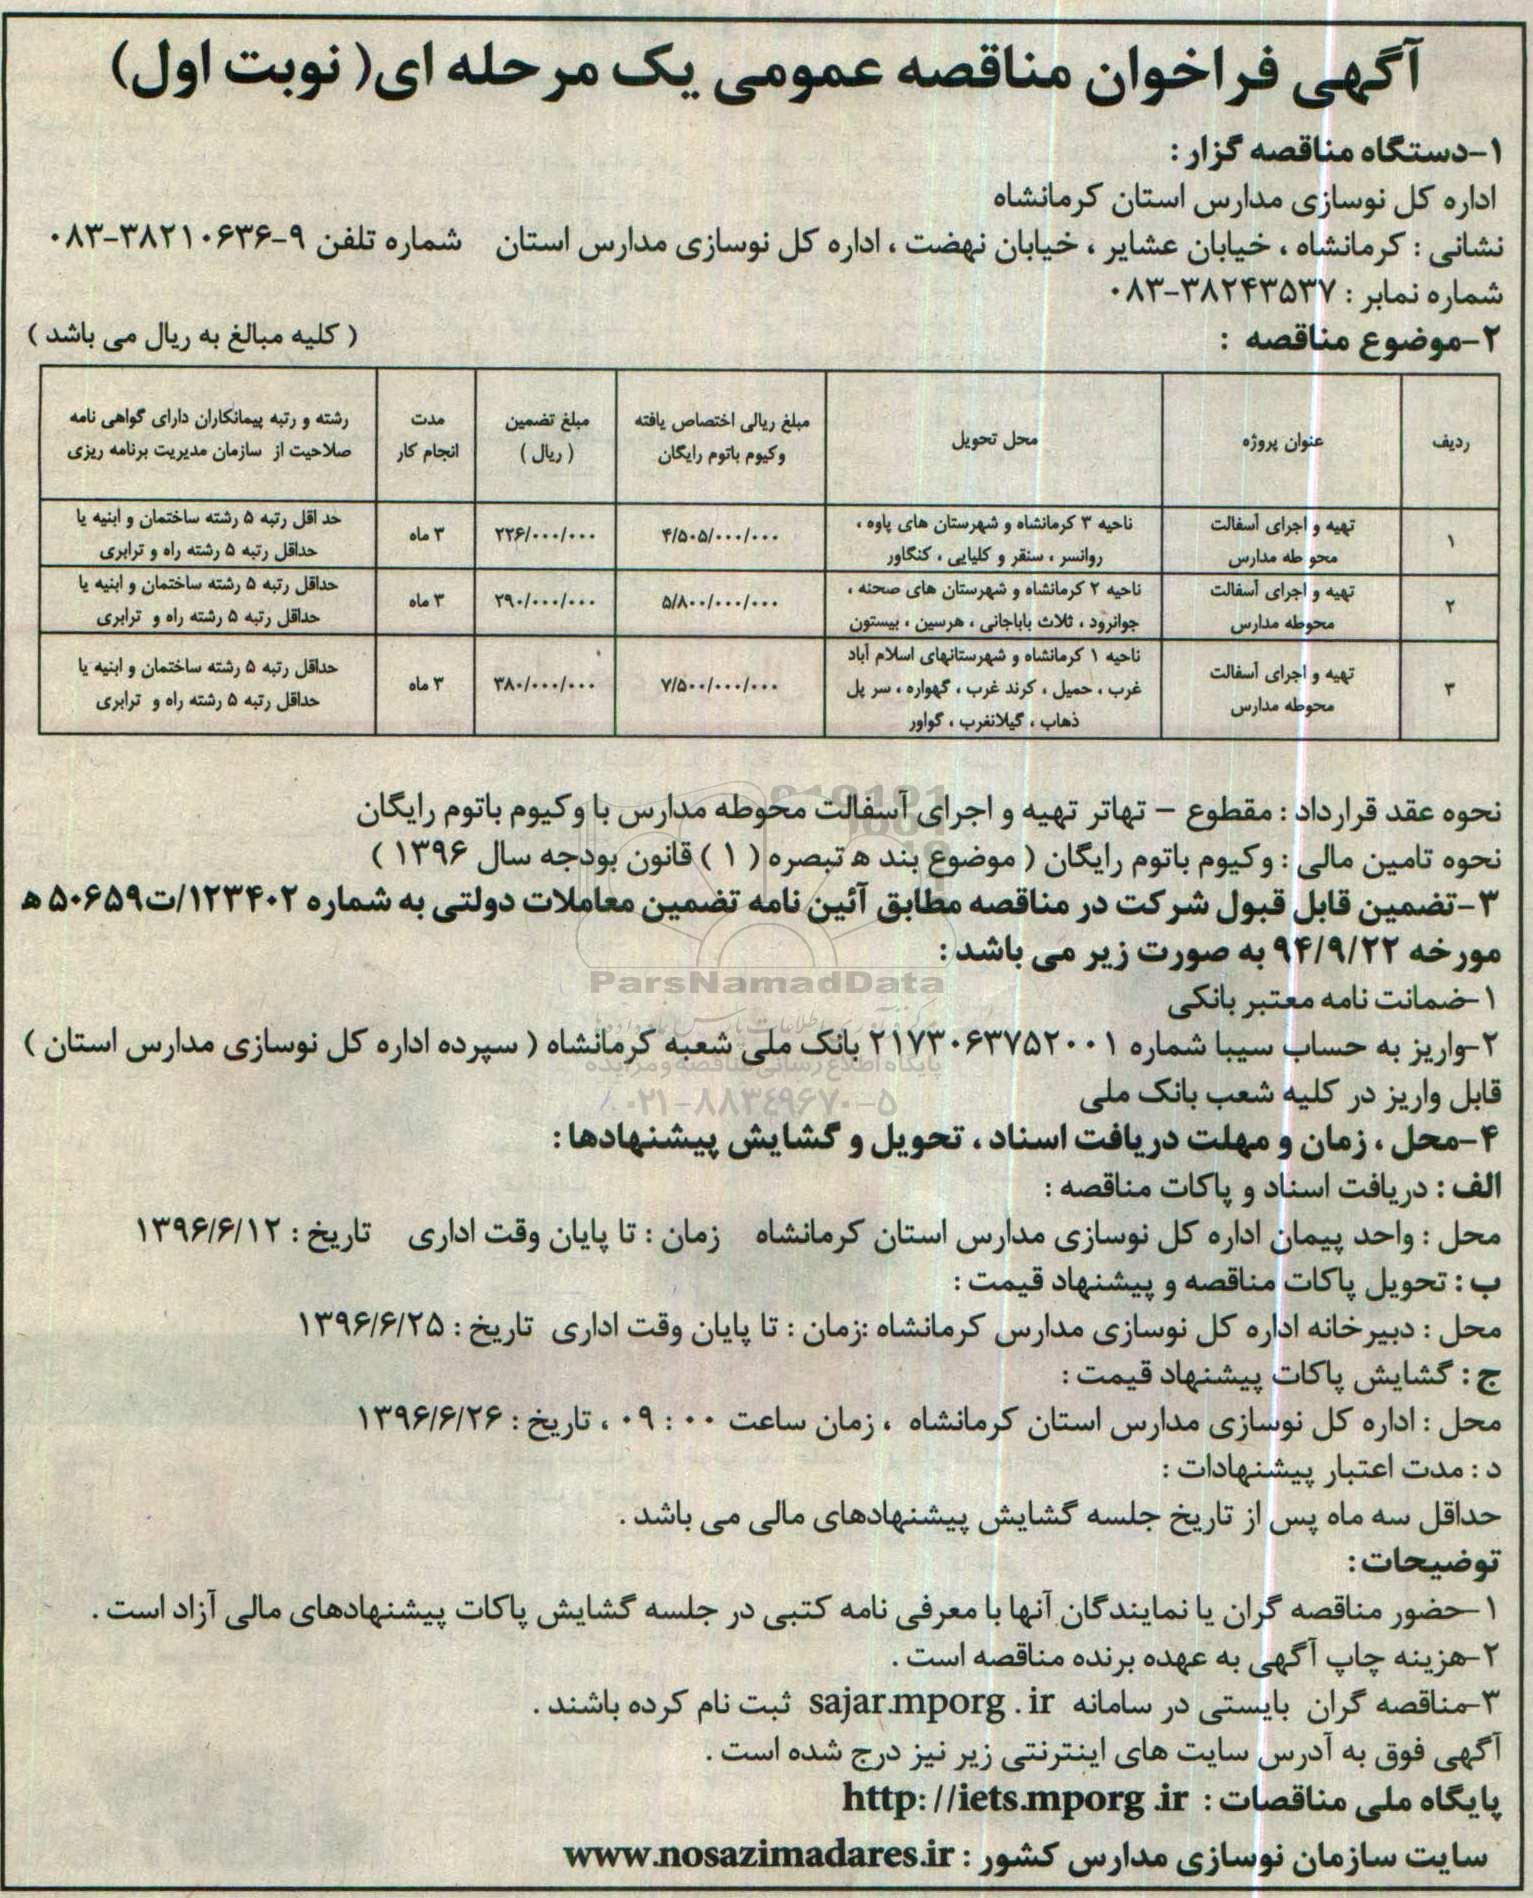 آگهی فراخوان مناقصه عمومی یک مرحله ای( نوبت اول)
۱-دستگاه مناقصه گزار :
اداره کل نوسازی مدارس استان کرمانشاه
نشانی : کرمانشاه ، خیابان عشایر ، خیابان نهضت ، اداره کل نوسازی مدارس استان شماره تلفن ۹-۳۸۲۱۰۶۳۶-۰۸۳
شماره نمابر : ۳۸۲۴۳۵۳۷-۰۸۳
۲-موضوع مناقصه : ( کلیه مبالغ به ریال می باشد )
ردیف عنوان پروژه محل تحویل مبلغ ریالی اختصاص یافته وکیوم باتوم رایگان مبلغ تضمین ( ریال ) مدت انجام کار رشته و رتبه پیمانکاران دارای گواهی نامه صلاحیت از سازمان مدیریت برنامه ریزی
۱ تهیه و اجرای آسفالت محوطه مدارس ناحیه ۳ کرمانشاه و شهرستان های پاوه ، روانسر ، سنقر و کلیایی ، کنگاور ۴/۵۰۵/۰۰۰/۰۰۰ ۲۲۶/۰۰۰/۰۰۰ ۳ ماه حداقل رتبه ۵ رشته ساختمان و ابنیه یا حداقل رتبه ۵ رشته راه و ترابری
۲ تهیه و اجرای آسفالت محوطه مدارس ناحیه ۲ کرمانشاه و شهرستان های صحنه ، جوانرود ، ثلاث باباجانی ، هرسین ، بیستون ۵/۸۰۰/۰۰۰/۰۰۰ ۲۹۰/۰۰۰/۰۰۰ ۳ ماه حداقل رتبه ۵ رشته ساختمان و ابنیه یا حداقل رتبه ۵ رشته راه و ترابری
۳ تهیه و اجرای آسفالت محوطه مدارس ناحیه ۱ کرمانشاه و شهرستانهای اسلام آباد غرب ، حمیل ، کرند غرب ، گهواره ، سر پل ذهاب ، گیلانغرب ، گواور ۷/۵۰۰/۰۰۰/۰۰۰ ۳۸۰/۰۰۰/۰۰۰ ۳ ماه حداقل رتبه ۵ رشته ساختمان و ابنیه یا حداقل رتبه ۵ رشته راه و ترابری
نحوه عقد قرارداد : مقطوع – تهاتر تهیه و اجرای آسفالت محوطه مدارس با وکیوم باتوم رایگان
نحوه تامین مالی : وکیوم باتوم رایگان ( موضوع بند ه تبصره ( ۱ ) قانون بودجه سال ۱۳۹۶ )
۳-تضمین قابل قبول شرکت در مناقصه مطابق آئین نامه تضمین معاملات دولتی به شماره ۱۲۳۴۰۲/ت۵۰۶۵۹ ه
مورخه ۹۴/۹/۲۲ به صورت زیر می باشد :
ParsNamadData
۱-ضمانت نامه معتبر بانکی
۲-واریز به حساب سیبا شماره ۲۱۷۳۰۶۳۷۵۲۰۰۱ بانک ملی شعبه کرمانشاه ( سپرده اداره کل نوسازی مدارس استان )
پایگاه اطلاع رسانی مناقصه و مزایده
قابل واریز در کلیه شعب بانک ملی
۰۲۱-۸۸۳۴۹۶۷۰-۵
۴-محل ، زمان و مهلت دریافت اسناد ، تحویل و گشایش پیشنهادها :
الف : دریافت اسناد و پاکات مناقصه :
محل : واحد پیمان اداره کل نوسازی مدارس استان کرمانشاه زمان : تا پایان وقت اداری تاریخ : ۱۳۹۶/۶/۱۲
ب : تحویل پاکات مناقصه و پیشنهاد قیمت :
محل : دبیرخانه اداره کل نوسازی مدارس کرمانشاه :زمان : تا پایان وقت اداری تاریخ : ۱۳۹۶/۶/۲۵
ج : گشایش پاکات پیشنهاد قیمت :
محل : اداره کل نوسازی مدارس استان کرمانشاه ، زمان ساعت ۰۰ : ۰۹ ، تاریخ : ۱۳۹۶/۶/۲۶
د : مدت اعتبار پیشنهادات :
حداقل سه ماه پس از تاریخ جلسه گشایش پیشنهادهای مالی می باشد .
توضیحات :
۱-حضور مناقصه گران یا نمایندگان آنها با معرفی نامه کتبی در جلسه گشایش پاکات پیشنهادهای مالی آزاد است .
۲-هزینه چاپ آگهی به عهده برنده مناقصه است .
۳-مناقصه گران بایستی در سامانه sajar.mporg . ir ثبت نام کرده باشند .
آگهی فوق به آدرس سایت های اینترنتی زیر نیز درج شده است .
پایگاه ملی مناقصات : http: //iets.mporg .ir
سایت سازمان نوسازی مدارس کشور : www.nosazimadares.ir